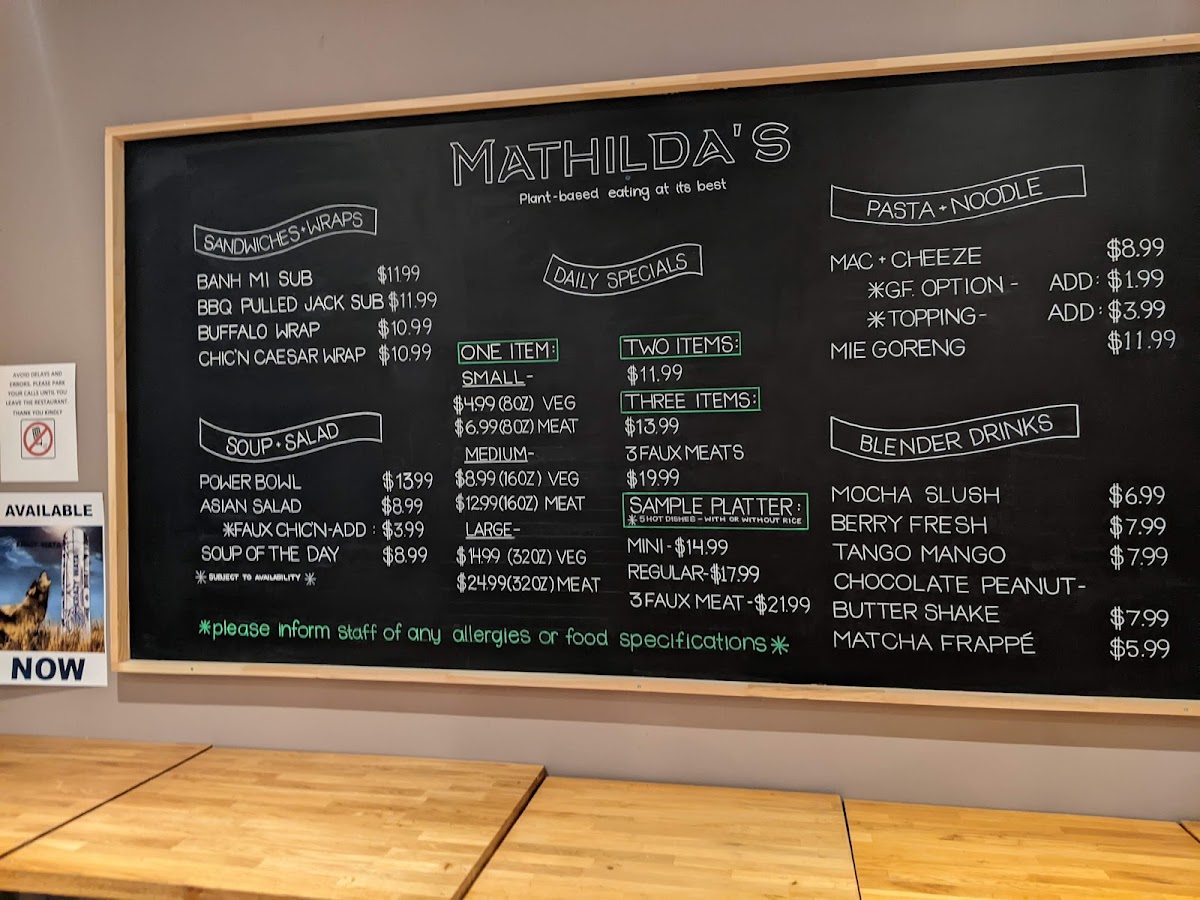 MATHILDA'S
Plant-based eating at its best
SANDWICHES+WRAPS
BANH MI SUB $11.99
BBQ PULLED JACK SUB $11.99
BUFFALO WRAP $10.99
CHIC'N CAESAR WRAP $10.99
SOUP+SALAD
POWER BOWL $13.99
ASIAN SALAD $8.99
*FAUX CHIC'N-ADD: $3.99
SOUP OF THE DAY $8.99
*SUBJECT TO AVAILABILITY*
DAILY SPECIALS
ONE ITEM:
SMALL-
$4.99 (8OZ) VEG
$6.99 (8OZ) MEAT
MEDIUM-
$8.99 (16OZ) VEG
$12.99 (16OZ) MEAT
LARGE-
$14.99 (32OZ) VEG
$24.99 (32OZ) MEAT
TWO ITEMS:
$11.99
THREE ITEMS:
$13.99
3 FAUX MEATS
$19.99
SAMPLE PLATTER:
*5 HOT DISHES - WITH OR WITHOUT RICE
MINI-$14.99
REGULAR-$17.99
3 FAUX MEAT-$21.99
PASTA+NOODLE
MAC+CHEEZE $8.99
*G.F. OPTION - ADD: $1.99
*TOPPING- ADD: $3.99
MIE GORENG $11.99
BLENDER DRINKS
MOCHA SLUSH $6.99
BERRY FRESH $7.99
TANGO MANGO $7.99
CHOCOLATE PEANUT-
BUTTER SHAKE $7.99
MATCHA FRAPPÉ $5.99
*please inform staff of any allergies or food specifications*
AVOID DELAYS AND
ERRORS. PLEASE PARK
YOUR CALLS UNTIL YOU
LEAVE THE RESTAURANT.
THANK YOU KINDLY
AVAILABLE
NOW